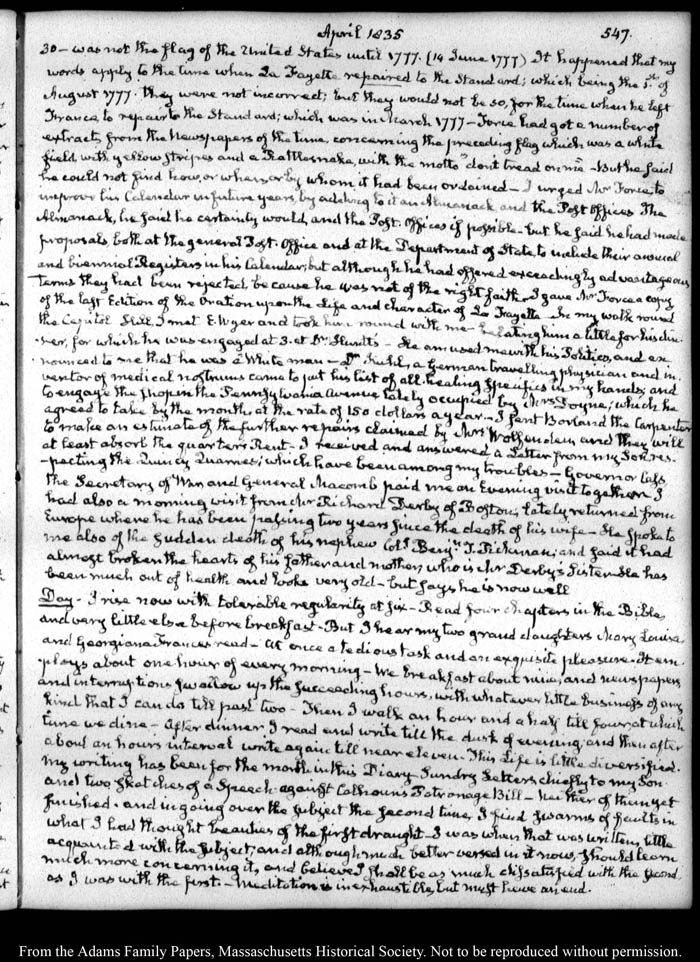 April 1835
547.
30 – was not the flag of the United States until 1777. (14 June 1777) It happened that my
words apply to the time when La Fayette repaired to the Standard; which being the 1st of
August 1777. they were not incorrect; but they would not be so, for the time when he left
France to repair to the Standard; which was in March 1777 – Force had got a number of
extracts from the Newspapers of the time, concerning the preceding flag which was a white
field with yellow stripes and a Rattlesnake, with the motto "don't tread on me" – But he said
he could not find how, or when, or by whom it had been ordained – I urged Mr Force to
improve his Calendar in future years, by adding to it an Almanack and the Post Offices The
Almanack, he said he certainly would, and the Post. Offices if possible. but he said he had made
proposals, both at the general Post. Office and at the Department of State, to include their annual
and biennial Registers in his Calendar; but although he had offered exceedingly advantageous
terms they had been rejected, because he was not of the right faith. I gave Mr Force a copy
of the last Edition of the Oration upon the Life and character of La Fayette – In my walk round
the Capitol Hill, I met E. Wyer and took him round with me – him a little for his din-
-ner, for which he was engaged at 3. at Dr Hunt's – He amused me with his Politics, and an-
nounced to me that he was a White man – Dr Kuhl, a German travelling physician and in-
ventor of medical nostrums came to put his list of all-healing specifics in my hands; and
to engage the shop in the Pennsylvania Avenue lately occupied by Mrs Coyne; which he
agreed to take by the month, at the rate of 150 dollars a year. – I sent Borland the Carpenter
to make an estimate of the further repairs claimed by Mrs Wolfenden and they will
at least absorb the quarter's Rent – I received and answered a Letter from my Son res-
-pecting the Quincy Quarries; which have been among my troubles – Governor Cass
the Secretary of War and General Macomb paid me an Evening visit together. I
had also a morning visit from Mr Richard Derby of Boston, lately returned from
Europe where he has been passing two years since the death of his wife – He spoke to
me also of the sudden death of his nephew Coll Benjn T. Pickman; and said it had
almost broken the hearts of his father and mother, who is Mr Derby's Sister – He has
been much out of health and looks very old – but says he is now well
Day – I rise now with tolerable regularity at six – Read four chapters in the Bible,
and very little else before breakfast – But I hear my two grand daughters Mary Louisa
and Georgiana Frances read – At once a tedious task and an exquisite pleasure. It em-
-ploys about one hour of every morning – We breakfast about nine, and newspapers
and interruptions swallow up the succeeding hours, with whatever little business of any
kind that I can do till past two – Then I walk an hour and a half till four, at which
time we dine – After dinner I read and write till the dusk of evening, and then after
about an hours interval write again till near eleven. This Life is little diversified.
My writing has been for the month in this Diary – Sundry Letters chiefly to my Son
and two sketches of a Speech against Calhoun's Patronage Bill – Neither of them yet
finished. and in going over the subject the second time, I find swarms of faults in
what I had thought beauties of the first draught – I was when that was written, little
acquainted with the subject; and although much better versed in it now, should learn
much more concerning it, and believe I shall be as much dissatisfied with the second
as I was with the first. – Meditation is inexhaustible, but must have an end.
From the Adams Family Papers, Massachusetts Historical Society. Not to be reproduced without permission.